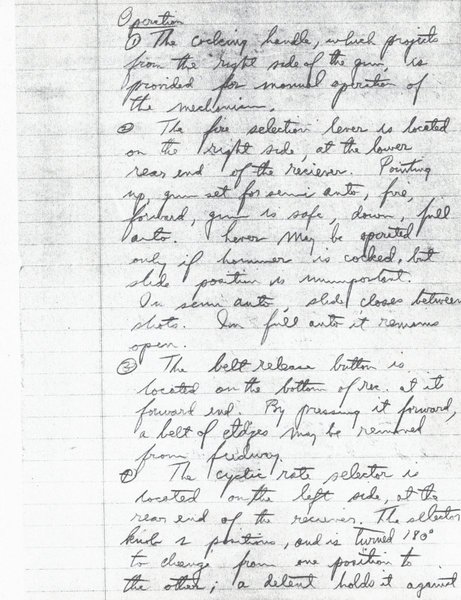 Operation
① The cocking handle, which projects
from the right side of the gun, is
provided for manual operation of
the mechanism.
② The fire selection lever is located
on the right side, at the lower
rear end of the reciever. Pointing
up, gun set for semi auto, fire,
forward, gun is safe, down, full
auto. Lever may be operated
only if hammer is cocked, but
slide position is unimportant.
In semi auto, slide closes between
shots. In full auto it remains
open.
③ The belt release button is
located on the bottom of rec. at it
forward end. By pressing it forward,
a belt of ctdges may be removed
from feedway.
④ The cyclic rate selector is
located on the left side, at the
rear end of the reciever. The selector
knob 2 positions, and is turned 180°
to change from one position to
the other; a detent holds it against